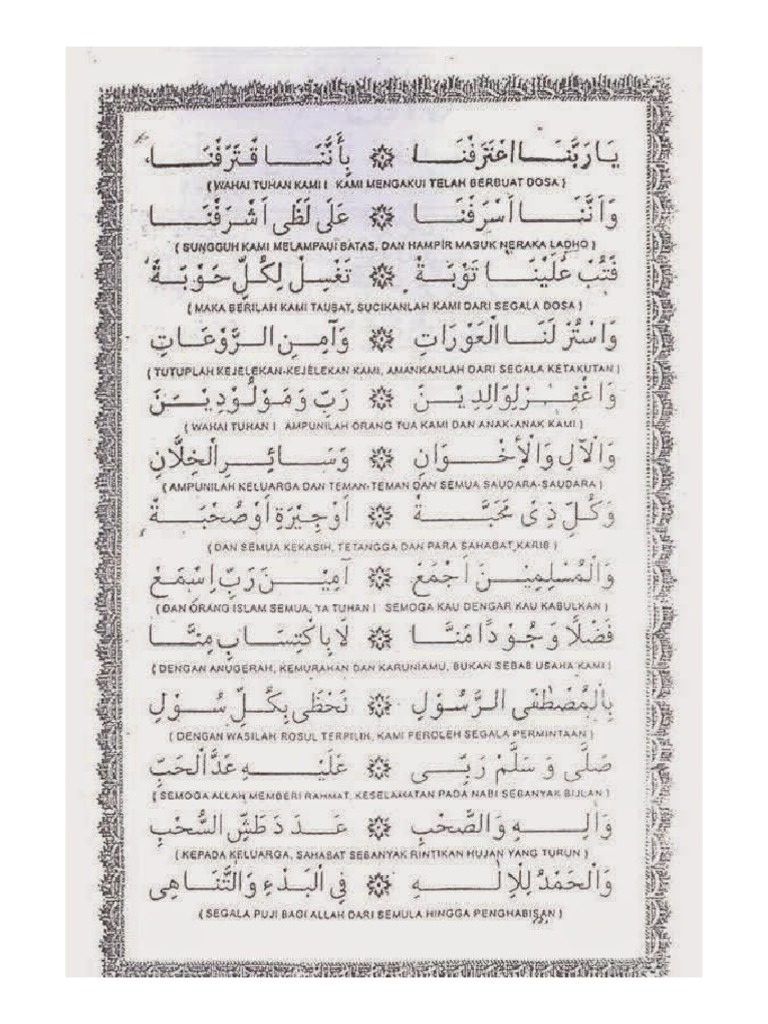 يَا رَبَّنَا اعْتَرَفْنَا ۞ بِأَنَّنَا قْتَرَفْنَا
(WAHAI TUHAN KAMI ! KAMI MENGAKUI TELAH BERBUAT DOSA)
وَأَنَّنَا أَسْرَفْنَا ۞ عَلَى لَظَى أَشْرَفْنَا
( SUNGGUH KAMI MELAMPAUI BATAS, DAN HAMPIR MASUK NERAKA LADHO )
فَتُبْ عَلَيْنَا تَوْبَةً ۞ تَغْسِلْ لِكُلِّ حَوْبَةً
( MAKA BERILAH KAMI TAUBAT, SUCIKANLAH KAMI DARI SEGALA DOSA )
وَاسْتُرْ لَنَا الْعَوْرَاتِ ۞ وَآمِنِ الرَّوْعَاتِ
( TUTUPLAH KEJELEKAN-KEJELEKAN KAMI, AMANKANLAH DARI SEGALA KETAKUTAN )
وَاغْفِرْ لِوَالِدِيْنَ ۞ رَبِّ وَمَوْلُوْدِيْنَ
( WAHAI TUHAN ! AMPUNILAH ORANG TUA KAMI DAN ANAK-ANAK KAMI )
وَالْآلِ وَالْأِخْوَانِ ۞ وَسَائِرِ الْخِلَّانِ
( AMPUNILAH KELUARGA DAN TEMAN-TEMAN DAN SEMUA SAUDARA-SAUDARA )
وَكُلِّ ذِى مَحَبَّةً ۞ أَوْ جِيْرَةِ أَوْ صُحْبَةً
( DAN SEMUA KEKASIH, TETANGGA DAN PARA SAHABAT KARIB )
وَالْمُسْلِمِيْنَ أَجْمَعْ ۞ آمِيْنَ رَبِّ اِسْمَعْ
( DAN ORANG ISLAM SEMUA, YA TUHAN ! SEMOGA KAU DENGAR KAU KABULKAN )
فَضْلًا وَجُوْدًا مَنَّا ۞ لَا بِاكْتِسَابٍ مِنَّا
( DENGAN ANUGERAH, KEMURAHAN DAN KARUNIAMU, BUKAN SEBAB USAHA KAMI )
بِالْمُصْطَفَى الرَّسُوْلِ ۞ نَحْظَى بِكُلِّ سُوْلِ
( DENGAN WASILAH ROSUL TERPILIH, KAMI PEROLEH SEGALA PERMINTAAN )
صَلَّى وَسَلَّمْ رَبِّى ۞ عَلَيْهِ عَدَّ الْحَبِّ
( SEMOGA ALLAH MEMBERI RAHMAT, KESELAMATAN PADA NABI SEBANYAK BIJIAN )
وَآلِهِ وَالصَّحْبِ ۞ عَدَدَ طَشِّ السُّحْبِ
( KEPADA KELUARGA, SAHABAT SEBANYAK RINTIKAN HUJAN YANG TURUN )
وَالْحَمْدُ لِلْاِلٰهِ ۞ فِى الْبَدْءِ وَالتَّنَاهِى
( SEGALA PUJI BAGI ALLAH DARI SEMULA HINGGA PENGHABISAN )